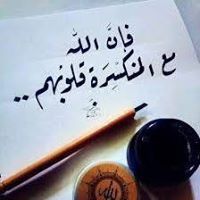 فَإنَّ اللّٰه
مع المنكَسِرَة قلوبُهم ..